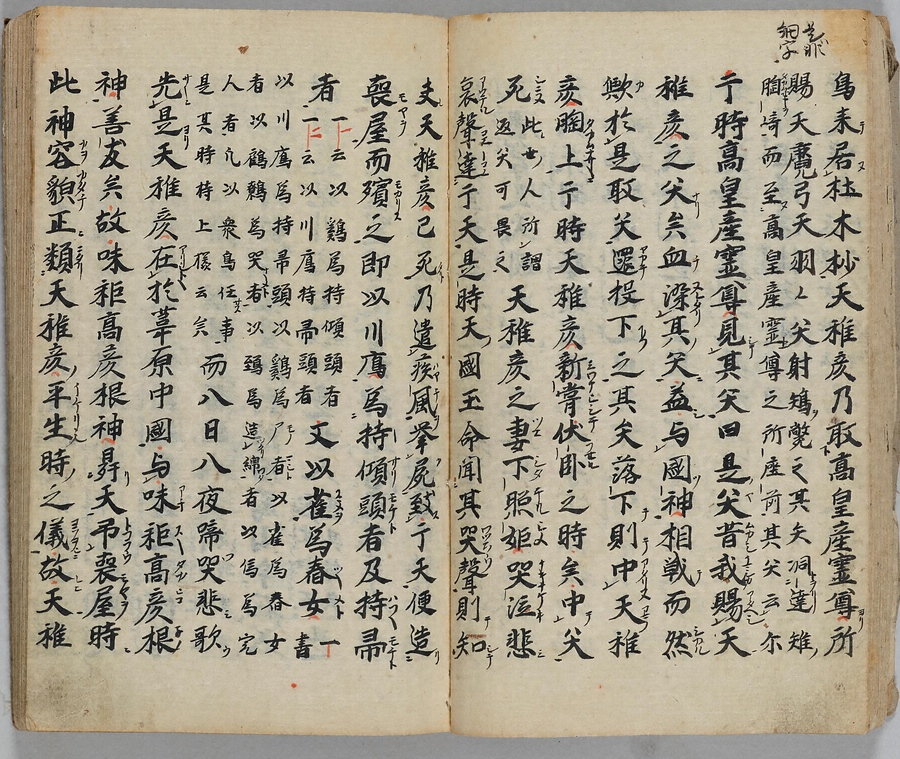 是非
細字
鳥来居杜木杪天稚彦乃取高皇産霊尊所
賜天麑弓天羽々矢射雉斃之其矢洞達雉
胸而至高皇産霊尊之所座前其矢云尓
于時高皇産霊尊見其矢曰是矢昔我賜天
稚彦之矢矣血染其矢益与國神相戦而然
歟於是取矢還投下之其矢落下則中天稚
彦胸上于時天稚彦新嘗伏臥之時矣中矢
死此世人所謂返矢可畏之天稚彦之妻下照姫哭泣悲
哀聲達于天是時天國玉命聞其哭聲則知
夫天稚彦已死乃遣疾風挙屍致于天便造
喪屋而殯之即以川鴈為持傾頭者及持帚
者一云以鷄為持傾頭者一云以川鴈持帚頭者又以雀為舂女一書
以川鴈為持帚頭以鷄為尸者以雀為舂女
者以鷦鷯為哭者以鵄為造綿者以烏為宍
人者凡以衆鳥任事
是其時持上云矣而八日八夜啼哭悲歌
先是天稚彦在於葦原中國与味耜高彦根
神善友矣故味耜高彦根神昇天弔喪屋時
此神容貌正類天稚彦平生時之儀故天稚